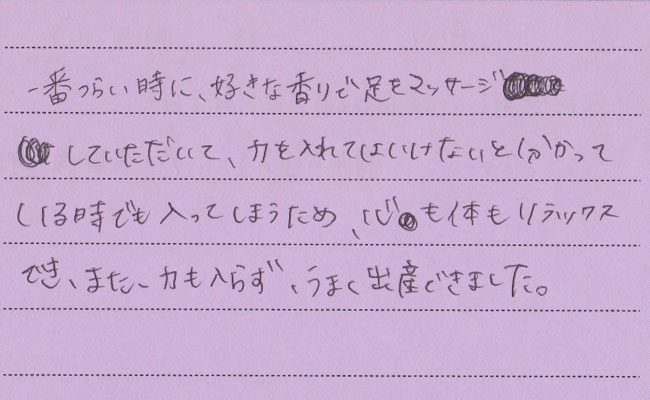 一番つらい時に、好きな香りで足をマッサージ
していただいて、力を入れてはいけないと分かって
いる時でも入ってしまうため、心も体もリラックス
でき、また、力も入らず、うまく出産できました。